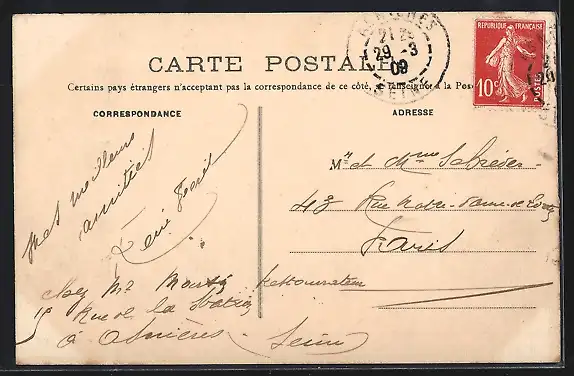 CARTE POSTALE
Certains pays étrangers n'acceptant pas la correspondance de ce côté, se renseigner à la Poste
CORRESPONDANCE
ADRESSE
RÉPUBLIQUE FRANÇAISE
10c
POSTES
21
29 -3
09
SEINE
Mes meilleures
amitiés
Mr et Mme
43 Rue Notre-Dame-de
Paris
chez Mr Restaurateur
15 Rue de la Station
à Asnières Seine